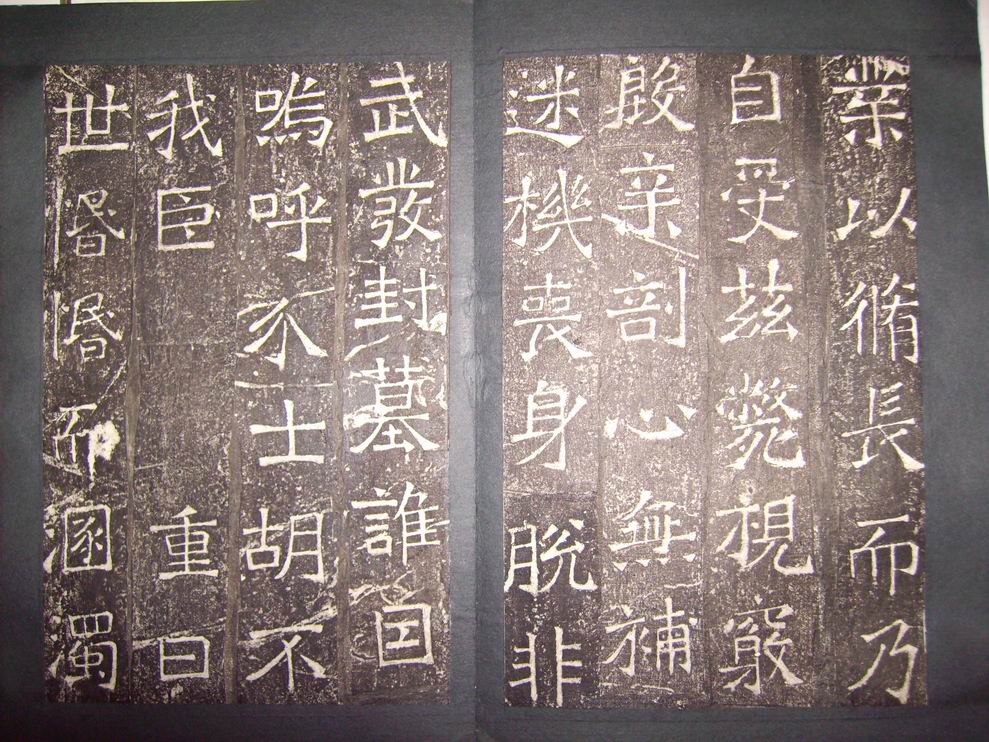 業以脩長而乃
自受茲斃視竅
殷辛剖心無補
迷機喪身脫非
武發封墓誰因
嗚呼介士胡不
我臣 重曰
世惛惛而溷濁